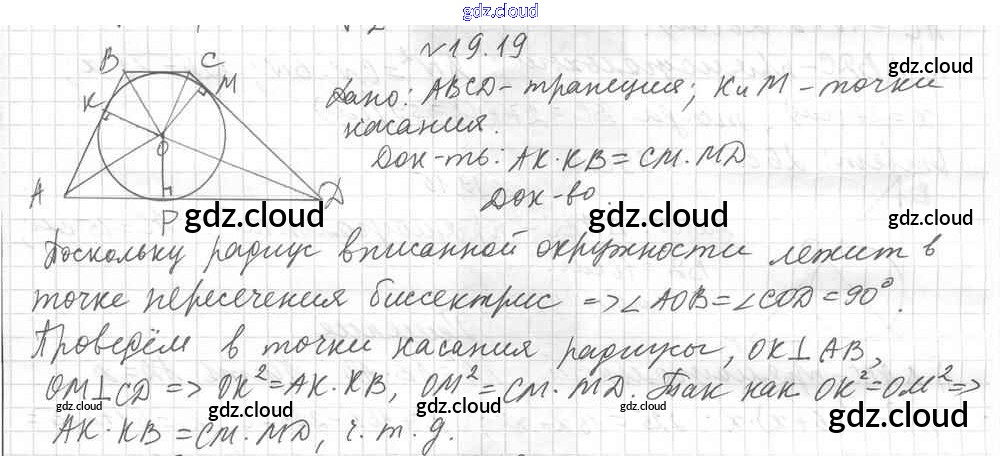 gdz.cloud
№19.19
Дано: ABCD - трапеция; K и M - точки
касания.
Док-ть: AK·KB = CM·MD
Док-во.
B C
K M
O
A P D
gdz.cloud
gdz.cloud
gdz.cloud gdz.cloud
Поскольку радиус вписанной окружности лежит в
точке пересечения биссектрис => ∠AOB = ∠COD = 90°.
Проведём в точки касания радиусы, OK⊥AB,
OM⊥CD => OK² = AK·KB, OM² = CM·MD. Так как OK² = OM² =>
AK·KB = CM·MD, ч.т.д.
gdz.cloud gdz.cloud gdz.cloud gdz.cloud
gdz.cloud